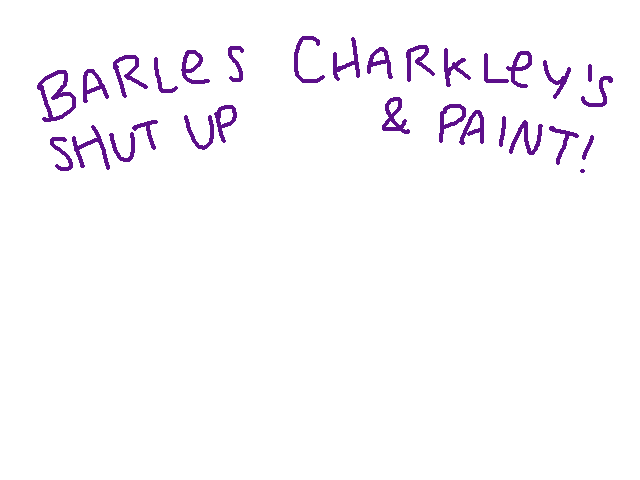 BARLeS CHARKLey's
SHUT UP & PAINT!